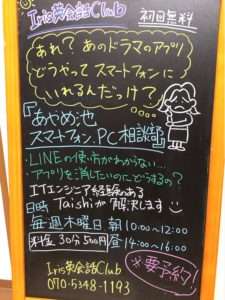 Iris英会話Club 初回無料
あれ？あのドラマのアプリ
どうやってスマートフォンに
いれるんだっけ？
『あやめ池
スマートフォン、PC相談部』
・LINEの使い方がわからない…
・アプリを消したいのにどうするの？
ITエンジニア経験のある
Taishiが解決します
日時 毎週木曜日 朝 10:00〜12:00
料金 30分500円 昼 14:00〜16:00
※要予約！
Iris英会話Club
090-5348-1193